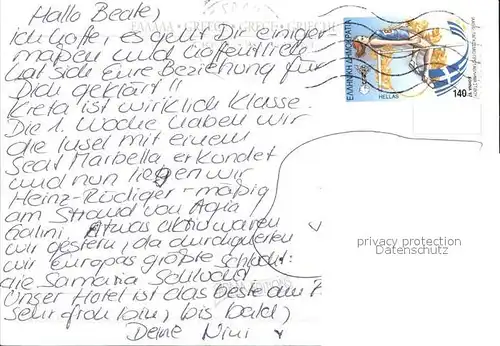 Hallo Beate,
ich hoffe, es geht Dir einiger-
maßen und hoffentlich
hat sich Eure Beziehung für
Dich geklärt!!
Kreta ist wirklich Klasse.
Die 1. Woche haben wir
die Insel mit einem
Seat Marbella erkundet
und nun liegen wir
Heinz-Rüdiger-mäßig
am Strand von Agia
Galini. Etwas aktiv waren
wir gestern, da durchquerten
wir Europas größte Schlucht:
die Samaria Schlucht
Unser Hotel ist das beste am
Sehr froh bin, bis bald,
Deine Nini
ΕΛΛΗΝΙΚΗ ΔΗΜΟΚΡΑΤΙΑ
HELLAS
140
privacy protection
Datenschutz